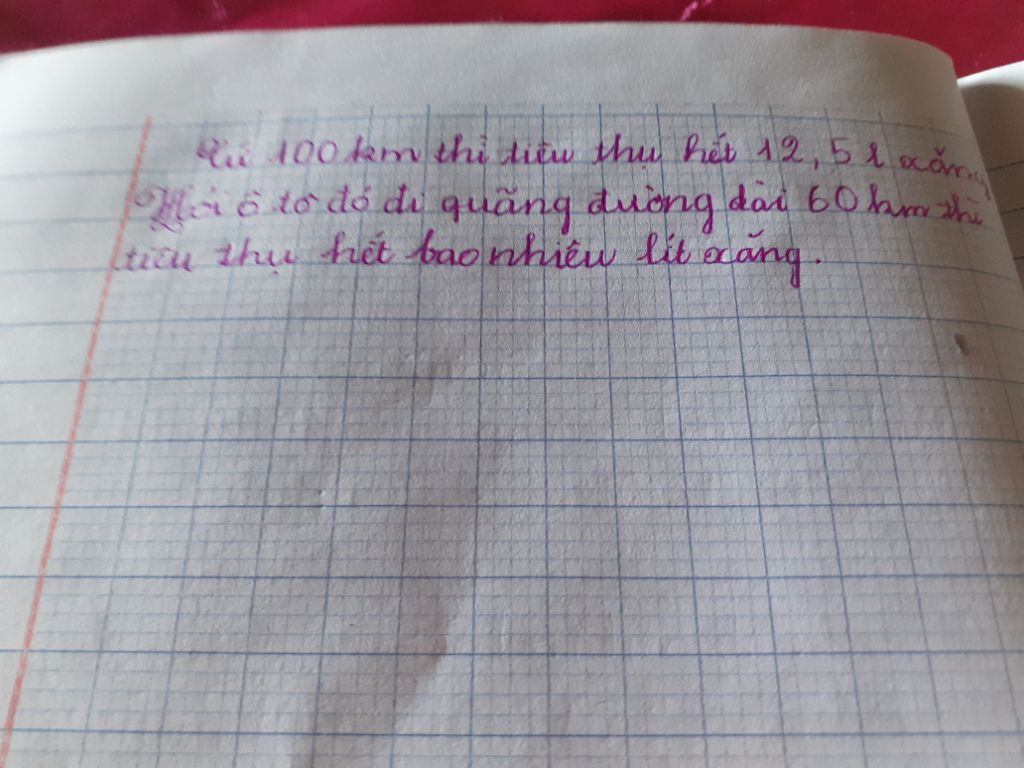 Cứ 100 km thì tiêu thụ hết 12,5 l xăng,
Hỏi ô tô đó đi quãng đường dài 60 km thì
tiêu thụ hết bao nhiêu lít xăng.